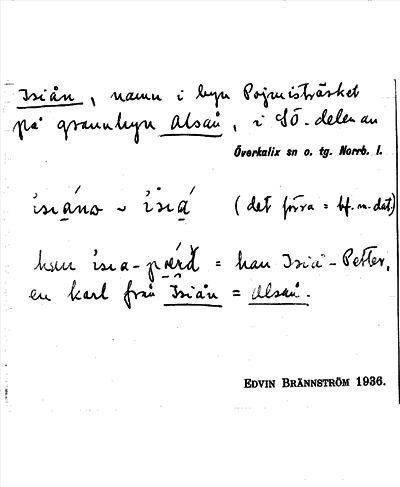 Isiån, namn i byn Pojmisträsket
på grannbyn Alsån, i SÖ-delen av
Överkalix sn o. tg. Norrb. l.
ísiáno ~ ísiá (det förra = bf. m. dat.)
han ísia- = han Isiå-Petter,
en karl från Isiån = Alsån.
EDVIN BRÄNNSTRÖM 1936.